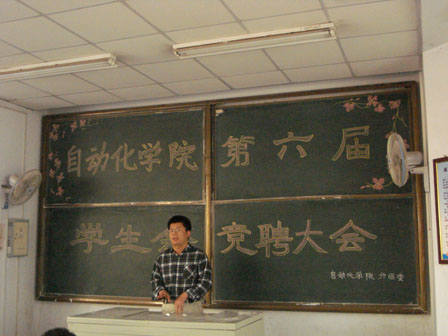 自动化学院 第六届
学生会 竞聘大会
自动化学院